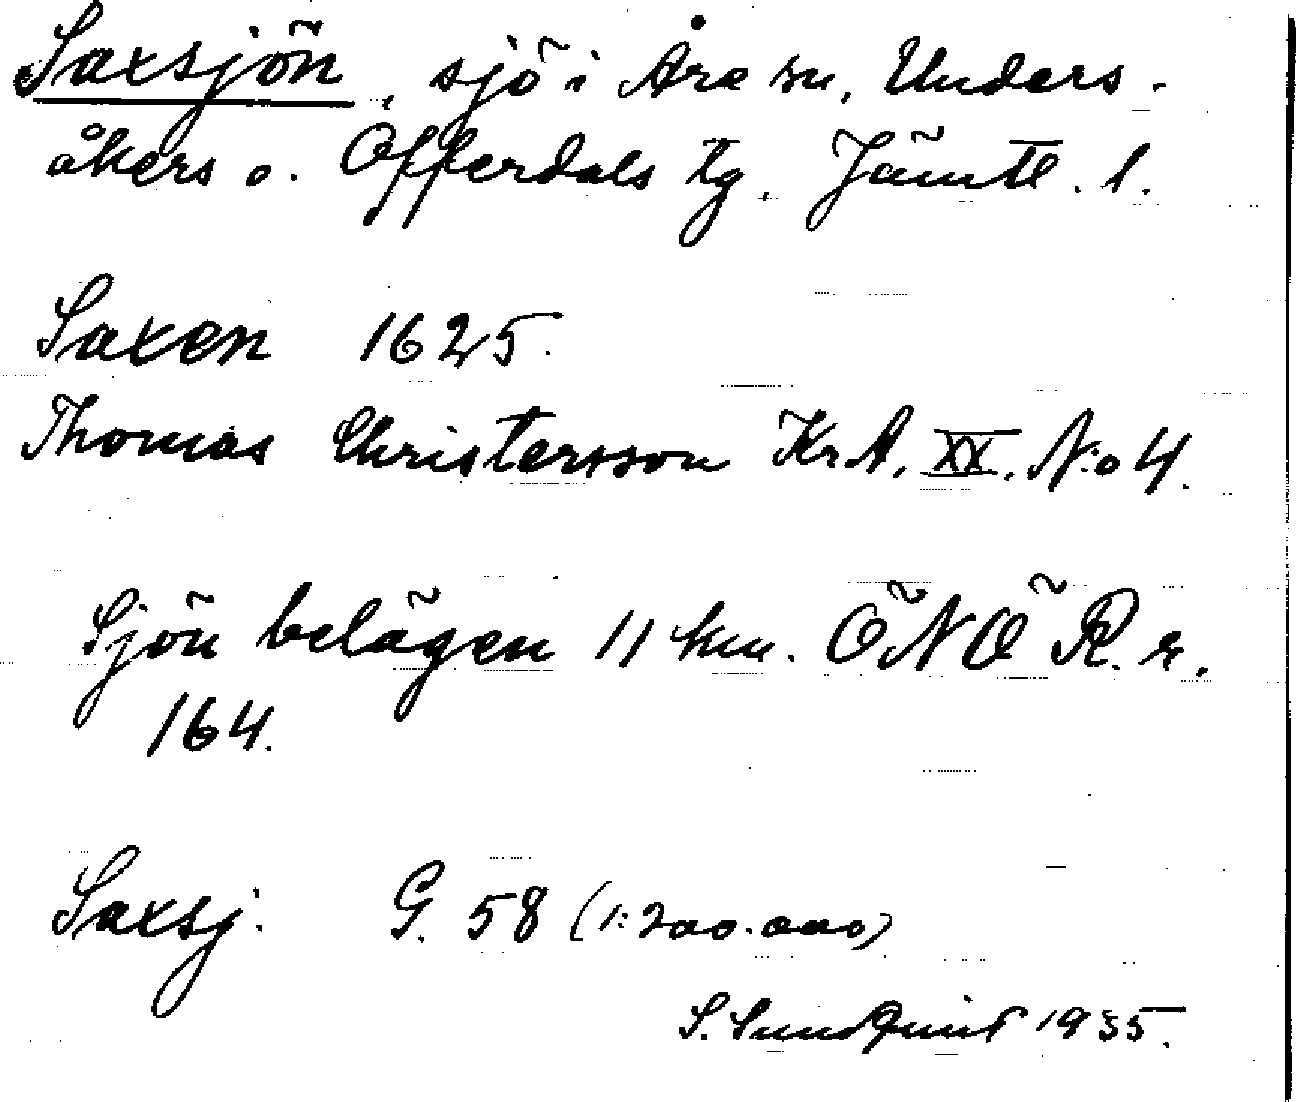 Saxsjön, sjö i Åre sn, Unders-
åkers o. Offerdals tg. Jämtl. l.
Saxen 1625.
Thomas Christersson Kr.A. XX. N:o 4.
Sjön belägen 11 km. ÖNÖ R. r.
164.
Saxsj. G. 58 (1:200.000)
S. Sundquist 1935.